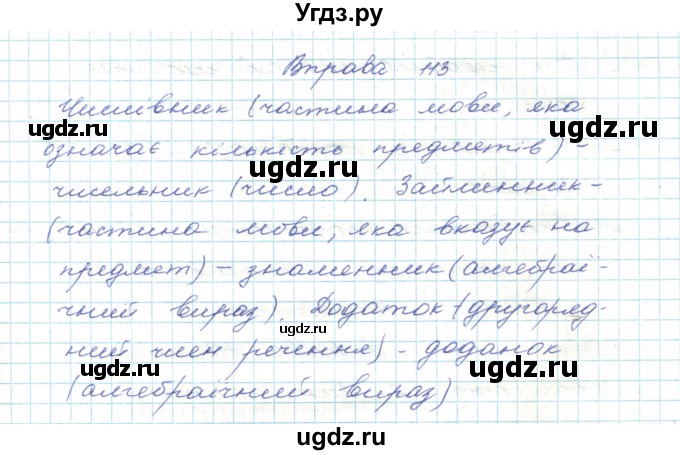 Угдз.ру
Вправа 113
Числівник (частина мови, яка
означає кількість предметів) -
чисельник (число). Займенник -
(частина мови, яка вказує на
предмет) - знаменник (алгебраї-
чний вираз). Додаток (другоряд-
ний член речення) - доданок
(алгебраїчний вираз)
ugdz.ru
ugdz.ru
ugdz.ru
ugdz.ru
ugdz.ru
ugdz.ru
ugdz.ru
ugdz.ru